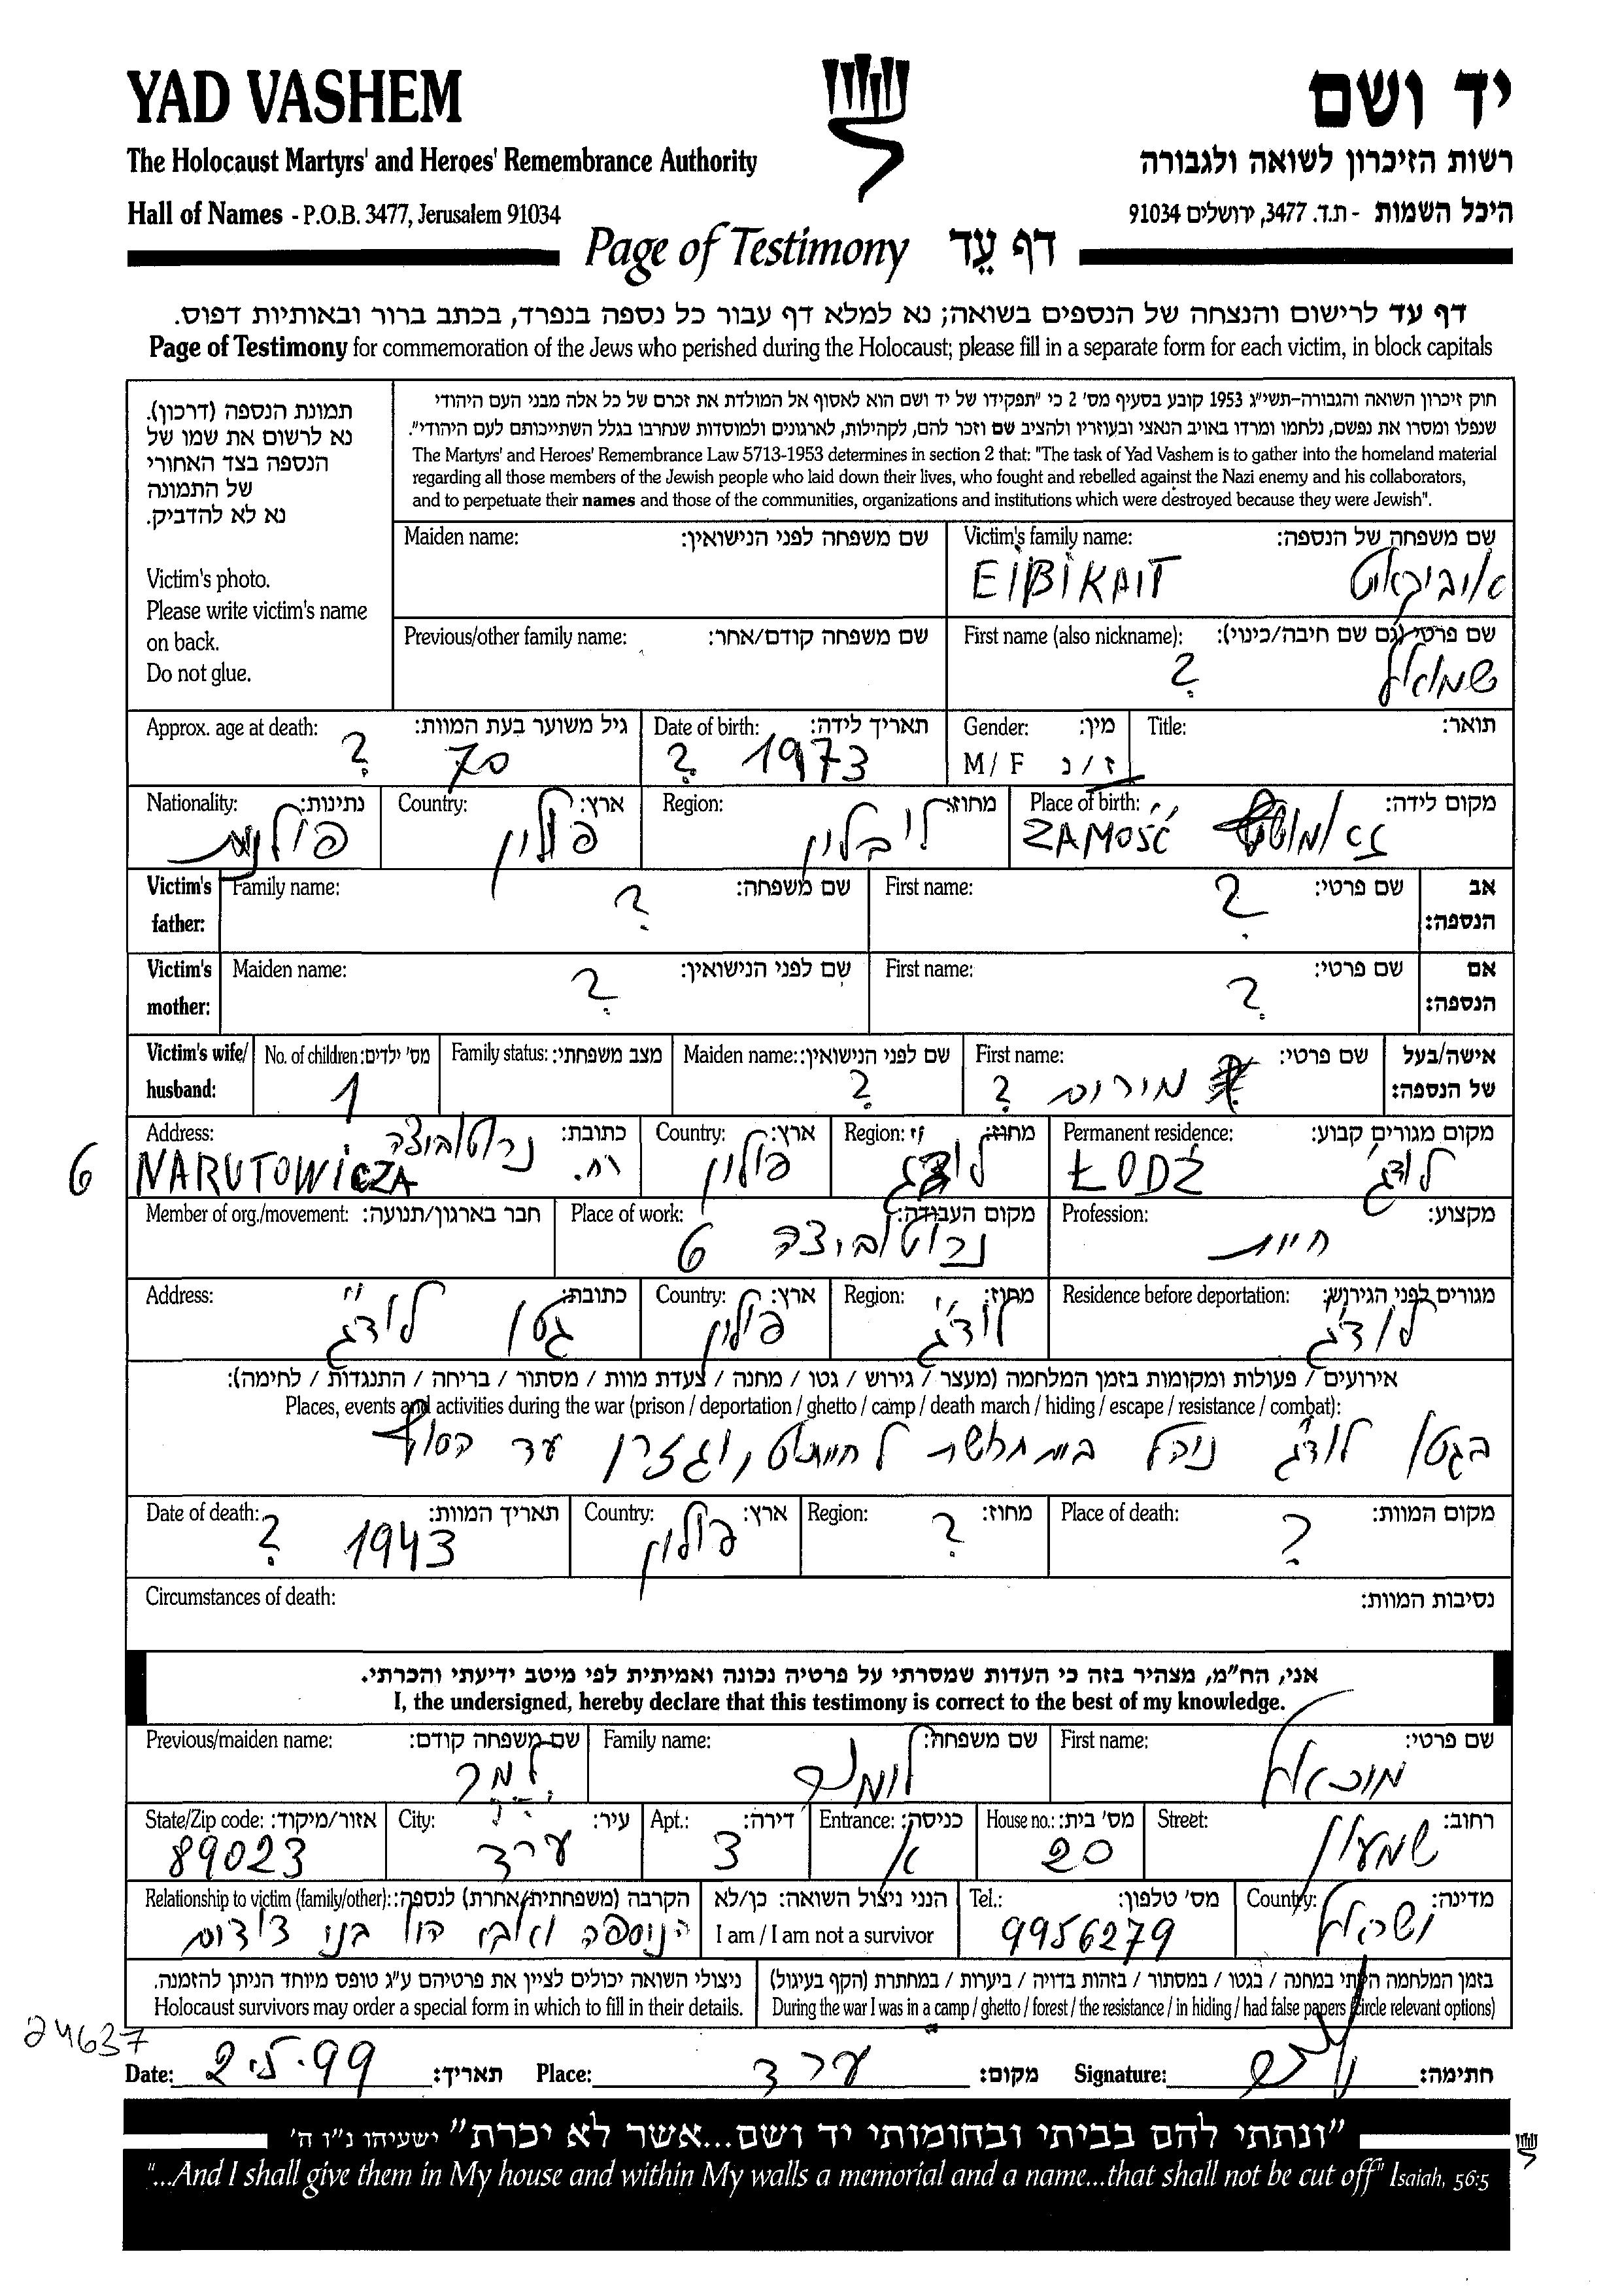 YAD VASHEM
יד ושם
The Holocaust Martyrs' and Heroes' Remembrance Authority
רשות הזיכרון לשואה ולגבורה
Hall of Names - P.O.B. 3477, Jerusalem 91034
היכל השמות - ת.ד. 3477, ירושלים 91034
Page of Testimony דף עֵד
דף עד לרישום והנצחה של הנספים בשואה; נא למלא דף עבור כל נספה בנפרד, בכתב ברור ובאותיות דפוס.
Page of Testimony for commemoration of the Jews who perished during the Holocaust; please fill in a separate form for each victim, in block capitals
תמונת הנספה (דרכון).
נא לרשום את שמו של
הנספה בצד האחורי
של התמונה
נא לא להדביק.
Victim's photo.
Please write victim's name
on back.
Do not glue.
חוק זיכרון השואה והגבורה-תשי"ג 1953 קובע בסעיף מס' 2 כי "תפקידו של יד ושם הוא לאסוף אל המולדת את זכרם של כל אלה מבני העם היהודי
שנפלו ומסרו את נפשם, נלחמו ומרדו באויב הנאצי ובעוזריו ולהציב שם וזכר להם, לקהילות, לארגונים ולמוסדות שנחרבו בגלל השתייכותם לעם היהודי".
The Martyrs' and Heroes' Remembrance Law 5713-1953 determines in section 2 that: "The task of Yad Vashem is to gather into the homeland material
regarding all those members of the Jewish people who laid down their lives, who fought and rebelled against the Nazi enemy and his collaborators,
and to perpetuate their names and those of the communities, organizations and institutions which were destroyed because they were Jewish".
Maiden name: שם משפחה לפני הנישואין:
Victim's family name: שם משפחה של הנספה:
EIBIKAIT אויביקאיט
Previous/other family name: שם משפחה קודם/אחר:
First name (also nickname): שם פרטי (גם שם חיבה/כינוי):
? שמואל
Approx. age at death: גיל משוער בעת המוות:
? 70
Date of birth: תאריך לידה:
? 1973
Gender: מין:
M / F ז / נ
Title: תואר:
Nationality: נתינות:
פולנית
Country: ארץ:
פולין
Region: מחוז:
לובלין
Place of birth: מקום לידה:
ZAMOŚĆ זאמושץ
Victim's father: Family name: שם משפחה: ?
First name: שם פרטי: ? אב הנספה:
Victim's mother: Maiden name: שם לפני הנישואין: ?
First name: שם פרטי: ? אם הנספה:
Victim's wife/ husband: No. of children: מס' ילדים: 1
Family status: מצב משפחתי:
Maiden name: שם לפני הנישואין: ?
First name: שם פרטי: ? מירים אישה/בעל של הנספה:
Address: כתובת:
6 NARUTOWICZA רח. נרוטוביצה
Country: ארץ: פולין
Region: מחוז: לודג'
Permanent residence: מקום מגורים קבוע:
ŁODŹ לודג'
Member of org./movement: חבר בארגון/תנועה:
Place of work: מקום העבודה:
נרוטוביצה 6
Profession: מקצוע:
חייט
Address: כתובת:
גטו לודג'
Country: ארץ: פולין
Region: מחוז: לודג'
Residence before deportation: מגורים לפני הגירוש:
לודג'
אירועים / פעולות ומקומות בזמן המלחמה (מעצר / גירוש / גטו / מחנה / צעדת מוות / מסתור / בריחה / התנגדות / לחימה):
Places, events and activities during the war (prison / deportation / ghetto / camp / death march / hiding / escape / resistance / combat):
בגטו לודג' ניהל בית חרושת לחייטות, וגזרן עד הסוף
Date of death: תאריך המוות:
? 1943
Country: ארץ: פולין
Region: מחוז: ?
Place of death: מקום המוות: ?
Circumstances of death: נסיבות המוות:
אני, הח"מ, מצהיר בזה כי העדות שמסרתי על פרטיה נכונה ואמיתית לפי מיטב ידיעתי והכרתי.
I, the undersigned, hereby declare that this testimony is correct to the best of my knowledge.
Previous/maiden name: שם משפחה קודם:
Family name: שם משפחה:
First name: שם פרטי:
מיכאל
State/Zip code: אזור/מיקוד: 89023
City: עיר: ערד
Apt.: דירה: 3
Entrance: כניסה: א
House no.: מס' בית: 20
Street: רחוב: שמעון
Relationship to victim (family/other): הקרבה (משפחתית/אחרת) לנספה:
הניספה ואבי היו בני דודים
הנני ניצול השואה: כן/לא
I am / I am not a survivor
Tel.: מס' טלפון: 9956279
Country: מדינה: ישראל
ניצולי השואה יכולים לציין את פרטיהם ע"ג טופס מיוחד הניתן להזמנה.
Holocaust survivors may order a special form in which to fill in their details.
בזמן המלחמה הייתי במחנה / בגטו / במסתור / בזהות בדויה / ביערות / במחתרת (הקף בעיגול)
During the war I was in a camp / ghetto / forest / the resistance / in hiding / had false papers (circle relevant options)
24637
Date: 2.5.99 תאריך:
Place: ערד מקום:
Signature: חתימה:
"ונתתי להם בביתי ובחומותי יד ושם...אשר לא יכרת" ישעיהו נ"ו ה'
"...And I shall give them in My house and within My walls a memorial and a name...that shall not be cut off" Isaiah, 56:5